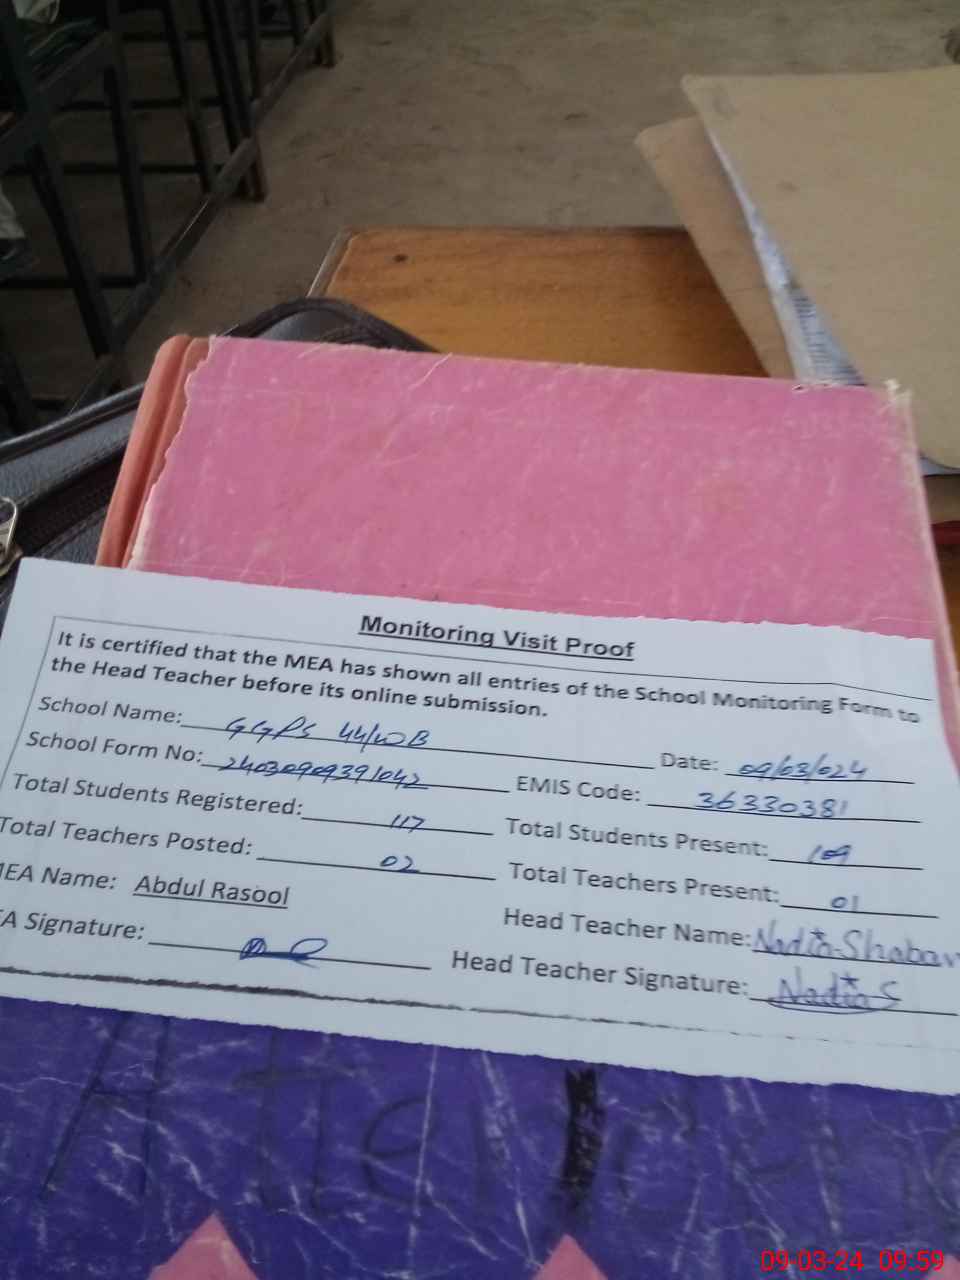 Monitoring Visit Proof
It is certified that the MEA has shown all entries of the School Monitoring Form to
the Head Teacher before its online submission.
School Name: GGPS 44/WB Date: 09/03/024
School Form No: 24030909391042 EMIS Code: 36330381
Total Students Registered: 117 Total Students Present: 109
Total Teachers Posted: 02 Total Teachers Present: 01
MEA Name: Abdul Rasool Head Teacher Name: Nadia Shaban
EA Signature: Head Teacher Signature: Nadia S
09-03-24 09:59